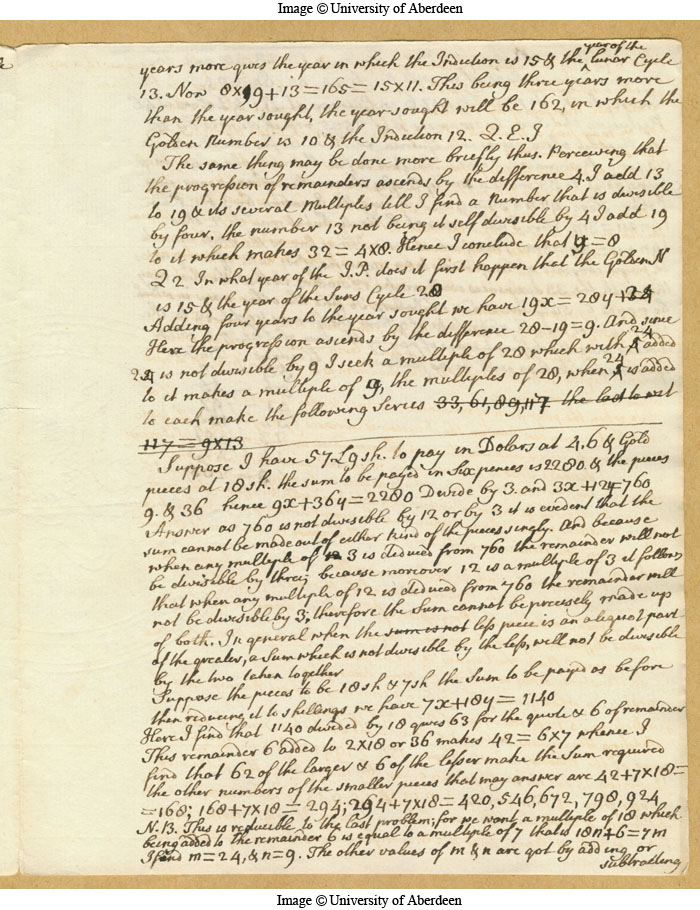 Image © University of Aberdeen
years more gives the year in which the Induction is 15 & the year of the lunar Cycle
13. Now 8x19+13=165=15x11. This being three years more
than the year sought, the year sought will be 162, in which the
Golden Number is 10 & the Induction 12. Q.E.J
The same thing may be done more briefly thus. Perceiving that
the progression of remainders ascends by the difference 4. I add 13
to 19 & its several Multiples till I find a number that is divisible
by four. the number 13 not being it self divisible by 4 I add 19
to it which makes 32=4x8. Hence I conclude that y=8
Q 2 In what year of the J.P. does it first happen that the Golden N
is 15 & the year of the Suns Cycle 28
Adding four years to the year sought we have 19x=28y+24
Here the progression ascends by the difference 28-19=9. And since
24 is not divisible by 9 I seek a multiple of 28 which with 24 added
to it makes a multiple of 9, the multiples of 28, when 24 is added
to each make the following Series 33, 61, 89, 117 the last to wit
117=9x13
Suppose I have 57£ 9 sh. to pay in Dolars at 4.6 & Gold
pieces at 18 sh. the sum to be payed in Six pences is 2280 & the pieces
9. & 36 hence 9x+36y=2280 Divide by 3. and 3x+12y=760
Answer as 760 is not divisible by 12 or by 3 it is evident that the
sum cannot be made out of either kind of the pieces singly. And because
when any multiple of 12 3 is deduced from 760 the remainder will not
be divisible by three; because moreover 12 is a multiple of 3 it follows
that when any multiple of 12 is deduced from 760 the remainder will
not be divisible by 3; therefore the Sum cannot be precisely made up
of both. In general when the sum is not less piece is an aliquot part
of the greater, a Sum which is not divisible by the less, will not be divisible
by the two taken together
Suppose the pieces to be 18 sh & 7 sh the Sum to be payed as before
then reducing it to shillings we have 7x+18y=1140
Here I find that 1140 divided by 18 gives 63 for the quote & 6 of remainder
This remainder 6 added to 2x18 or 36 makes 42=6x7 whence I
find that 62 of the larger & 6 of the lesser make the Sum required
the other numbers of the smaller pieces that may answer are 42+7x18=
=168; 168+7x18=294; 294+7x18=420, 546, 672, 798, 924
N.B. This is reducible to the last problem; for we want a multiple of 18 which
being added to the remainder 6 is equal to a multiple of 7 that is 18n+6=7m
I find m=24, & n=9. The other values of m & n are got by adding or
subtracting
Image © University of Aberdeen